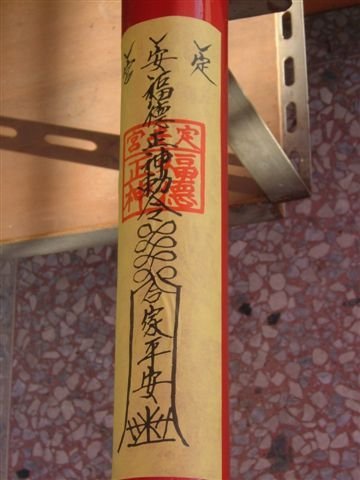 定
安福德正神勅令
合家平安
福德
正神